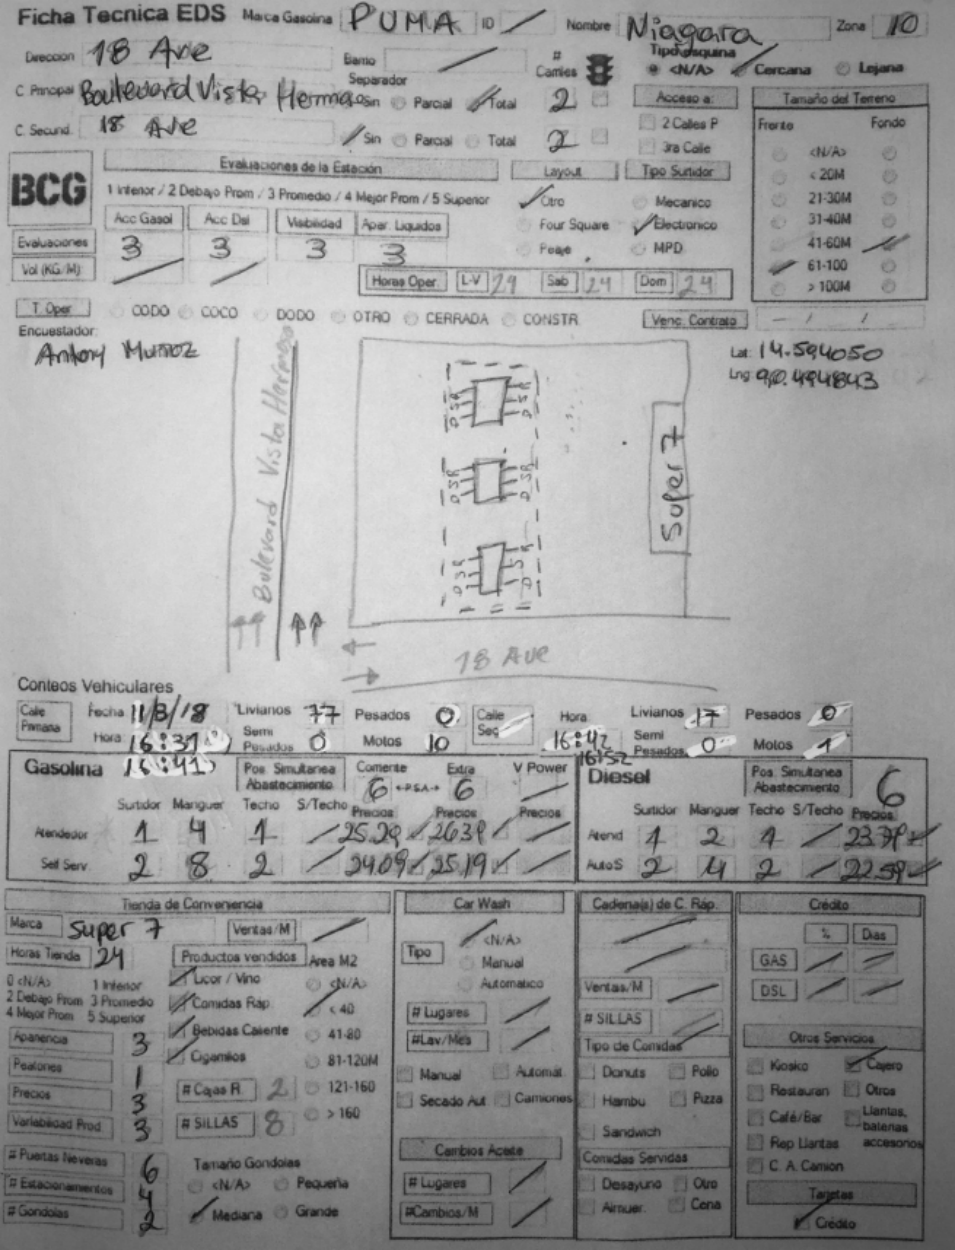 Ficha Tecnica EDS Marca Gasolina PUMA ID Nombre Niagara Zona 10
Direccion 18 Ave Barrio # Carriles Tipo esquina
<N/A> Cercana Lejana
C Principal Boulevard Vista Hermosa Separador Sin Parcial Total 2
C. Secund. 18 Ave Sin Parcial Total 2
Acceso a:
2 Calles P
3ra Calle
Tamaño del Terreno
Frente Fondo
<N/A>
< 20M
21-30M
31-40M
41-60M
61-100
> 100M
BCG
Evaluaciones de la Estación
1 Inferior / 2 Debajo Prom / 3 Promedio / 4 Mejor Prom / 5 Superior
Acc Gasol Acc Dsl Visibilidad Apar. Liquidos
Evaluaciones 3 3 3 3
Vol (KG/M)
Layout
Otro
Four Square
Peaje
Tipo Surtidor
Mecanico
Electronico
MPD
Horas Oper. L-V 24 Sab 24 Dom 24
T. Oper CODO COCO DODO OTRO CERRADA CONSTR. Venc. Contrato - / /
Encuestador:
Antony Muñoz
Lat: 14.594050
Lng 90.494843
Bulevard Vista Hermosa
D S R
D S R
D S R
Super 7
18 Ave
Conteos Vehiculares
Calle Primaria Fecha 11/3/18 Livianos 77 Pesados 0 Calle Sec Hora Livianos 17 Pesados 0
Hora 16:31 Semi Pesados 0 Motos 10 16:42 Semi Pesados 0 Motos 1
16:41 16:52
Gasolina Pos. Simultanea Abastecimiento Corriente 6 Extra 6 V Power
Surtidor Manguer Techo S/Techo Precios Precios Precios
Atendedor 1 4 1 25.29 26.39
Self Serv. 2 8 2 24.09 25.19
Diesel Pos. Simultanea Abastecimiento 6
Surtidor Manguer Techo S/Techo Precios
Atend 1 2 1 23.79
Auto S 2 4 2 22.59
Tienda de Conveniencia
Marca Super 7 Ventas/M
Horas Tienda 24
0 <N/A> 1 Inferior
2 Debajo Prom 3 Promedio
4 Mejor Prom 5 Superior
Apariencia 3
Peatones 1
Precios 3
Variabilidad Prod 3
# Puertas Neveras 6
# Estacionamientos 4
# Gondolas 2
Productos vendidos
Licor / Vino
Comidas Rap.
Bebidas Caliente
Cigarrillos
# Cajas R 2
# SILLAS 8
Area M2
<N/A>
< 40
41-80
81-120M
121-160
> 160
Tamaño Gondolas
<N/A> Pequeña
Mediana Grande
Car Wash
Tipo <N/A>
Manual
Automatico
# Lugares
#Lav/Mes
Manual Automat.
Secado Aut Camiones
Cambios Aceite
# Lugares
#Cambios/M
Cadena(s) de C. Ráp.
Ventas/M
# SILLAS
Tipo de Comidas
Donuts Pollo
Hambu Pizza
Sandwich
Comidas Servidas
Desayuno Otro
Almuer. Cena
Crédito
% Dias
GAS
DSL
Otros Servicios
Kiosko Cajero
Restauran Otros
Café/Bar Llantas, baterias accesorios
Rep Llantas
C. A. Camion
Tarjetas
Crédito